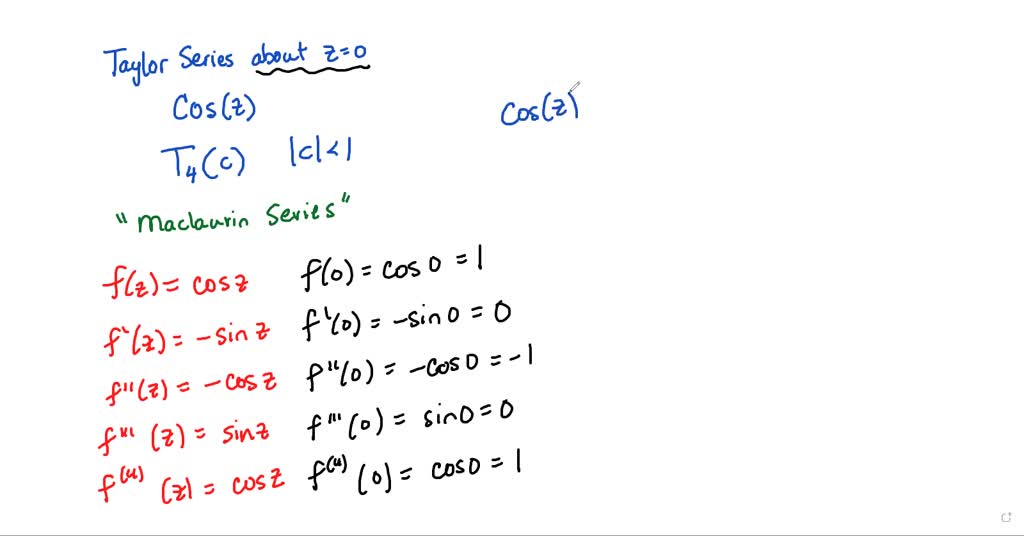 Taylor Series about z=0
Cos(z)
Cos(z)
T₄(c) |c|<1
"Maclaurin Series"
f(z) = cosz f(0) = cos0 = 1
f'(z) = -sinz f'(0) = -sin0 = 0
f''(z) = -cosz f''(0) = -cos0 = -1
f'''(z) = sinz f'''(0) = sin0 = 0
f⁽⁴⁾(z) = cosz f⁽⁴⁾(0) = cos0 = 1